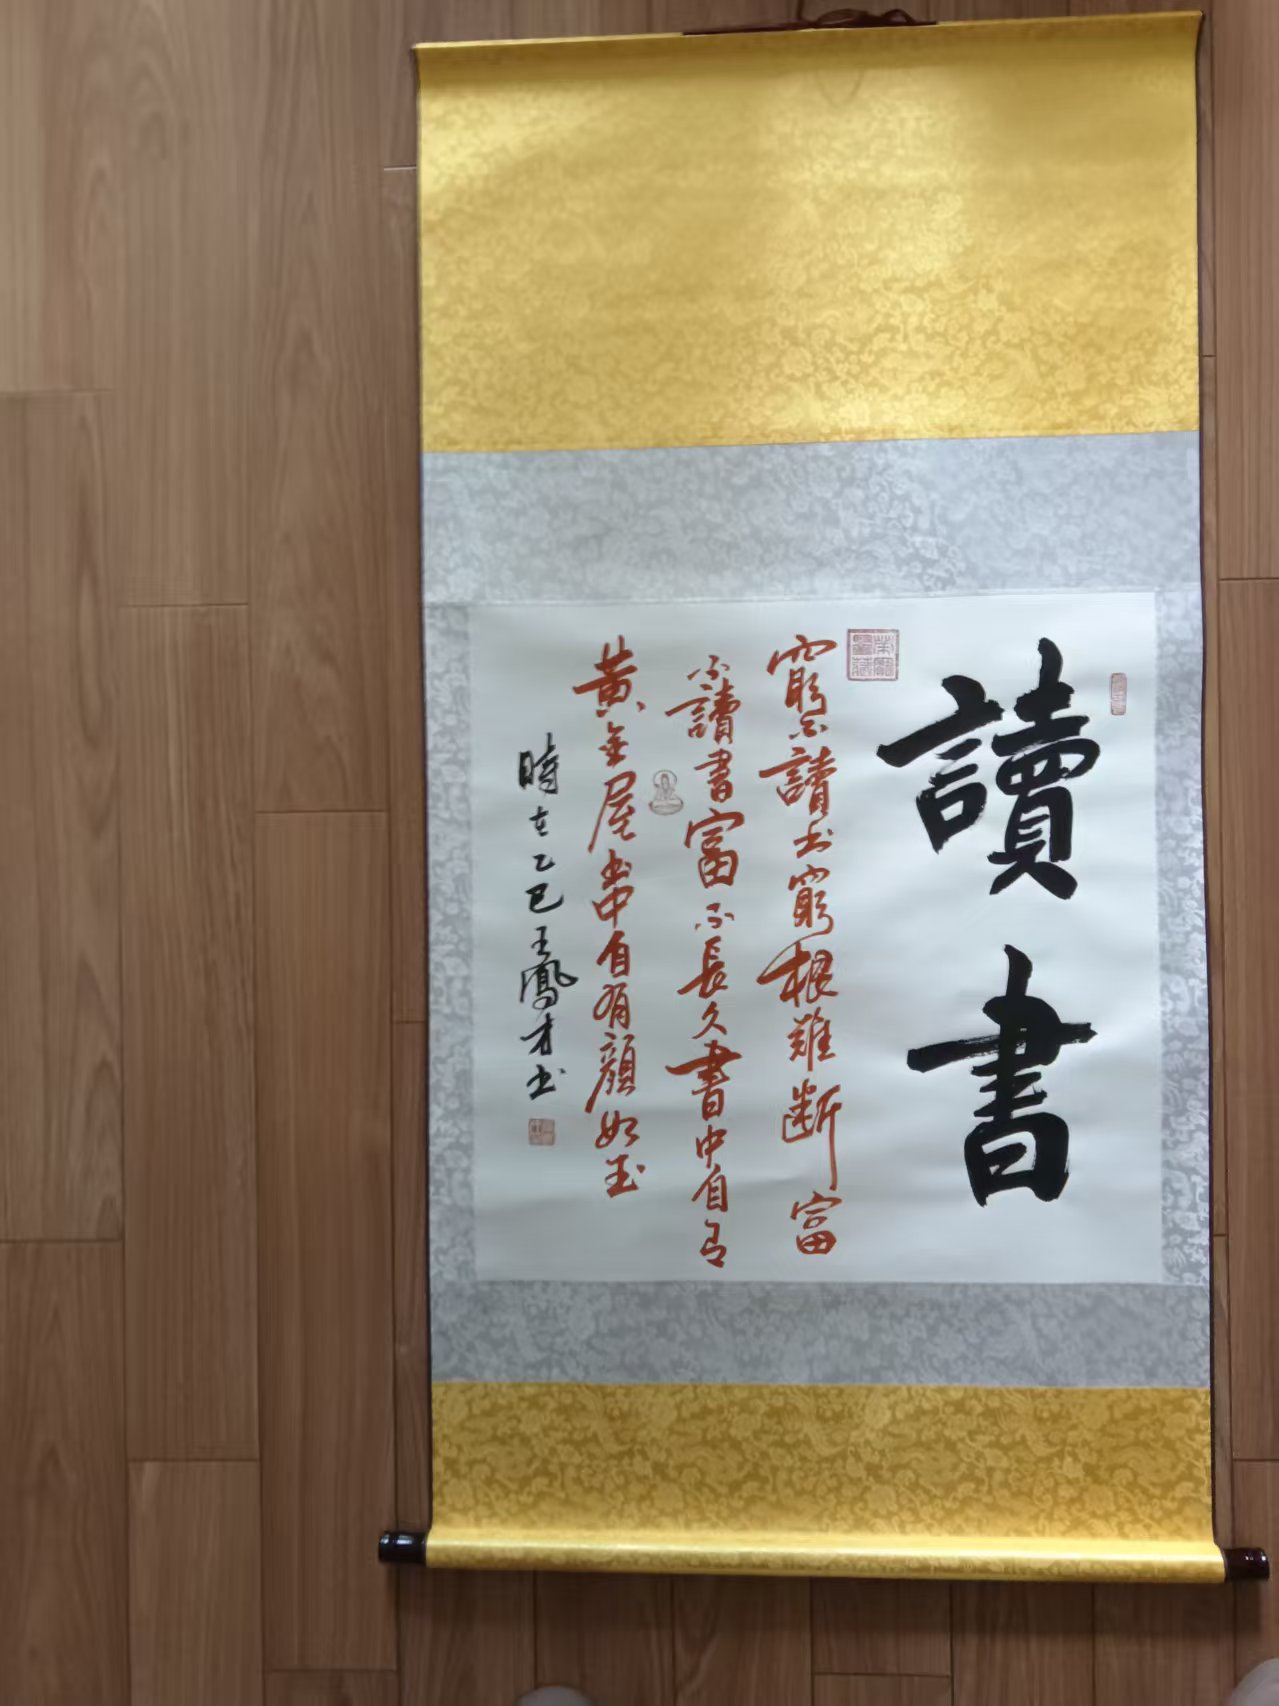 讀書
窮不讀书窮根難断富
不讀書富不長久書中自有
黄金屋书中自有顏如玉
時在乙巳王鳳才书